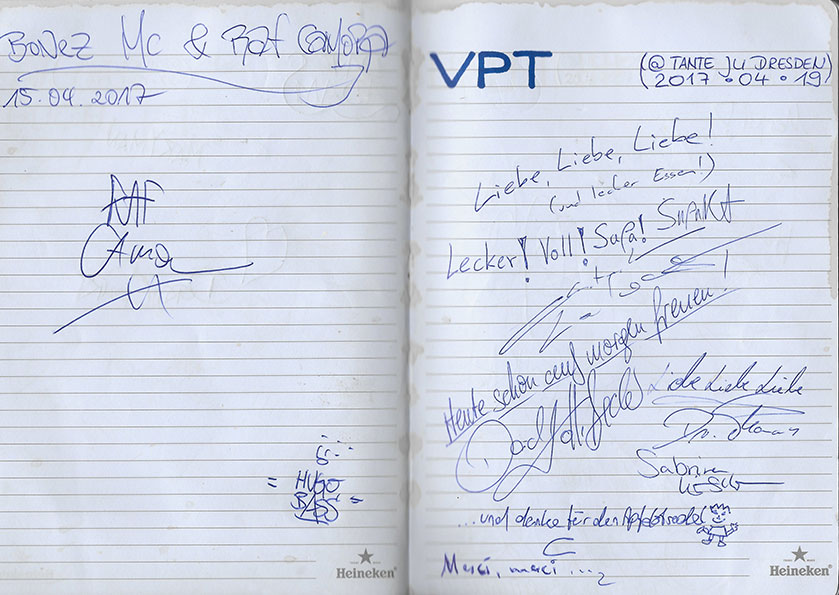 BONEZ MC & RAF CAMORA
15.04.2017
RAF
Camora
= HUGO
BASS =
Heineken
VPT
(@ TANTE JU DRESDEN)
(2017 • 04 • 19)
Liebe, Liebe, Liebe!
(und lecker Essen!)
Lecker! Voll! Supa!
Heute schon auf morgen freuen!
Liebe Liebe Liebe
Dr. Thomas
Sabrina
...und danke für den Apfelstrudel
Merci, merci ...
Heineken